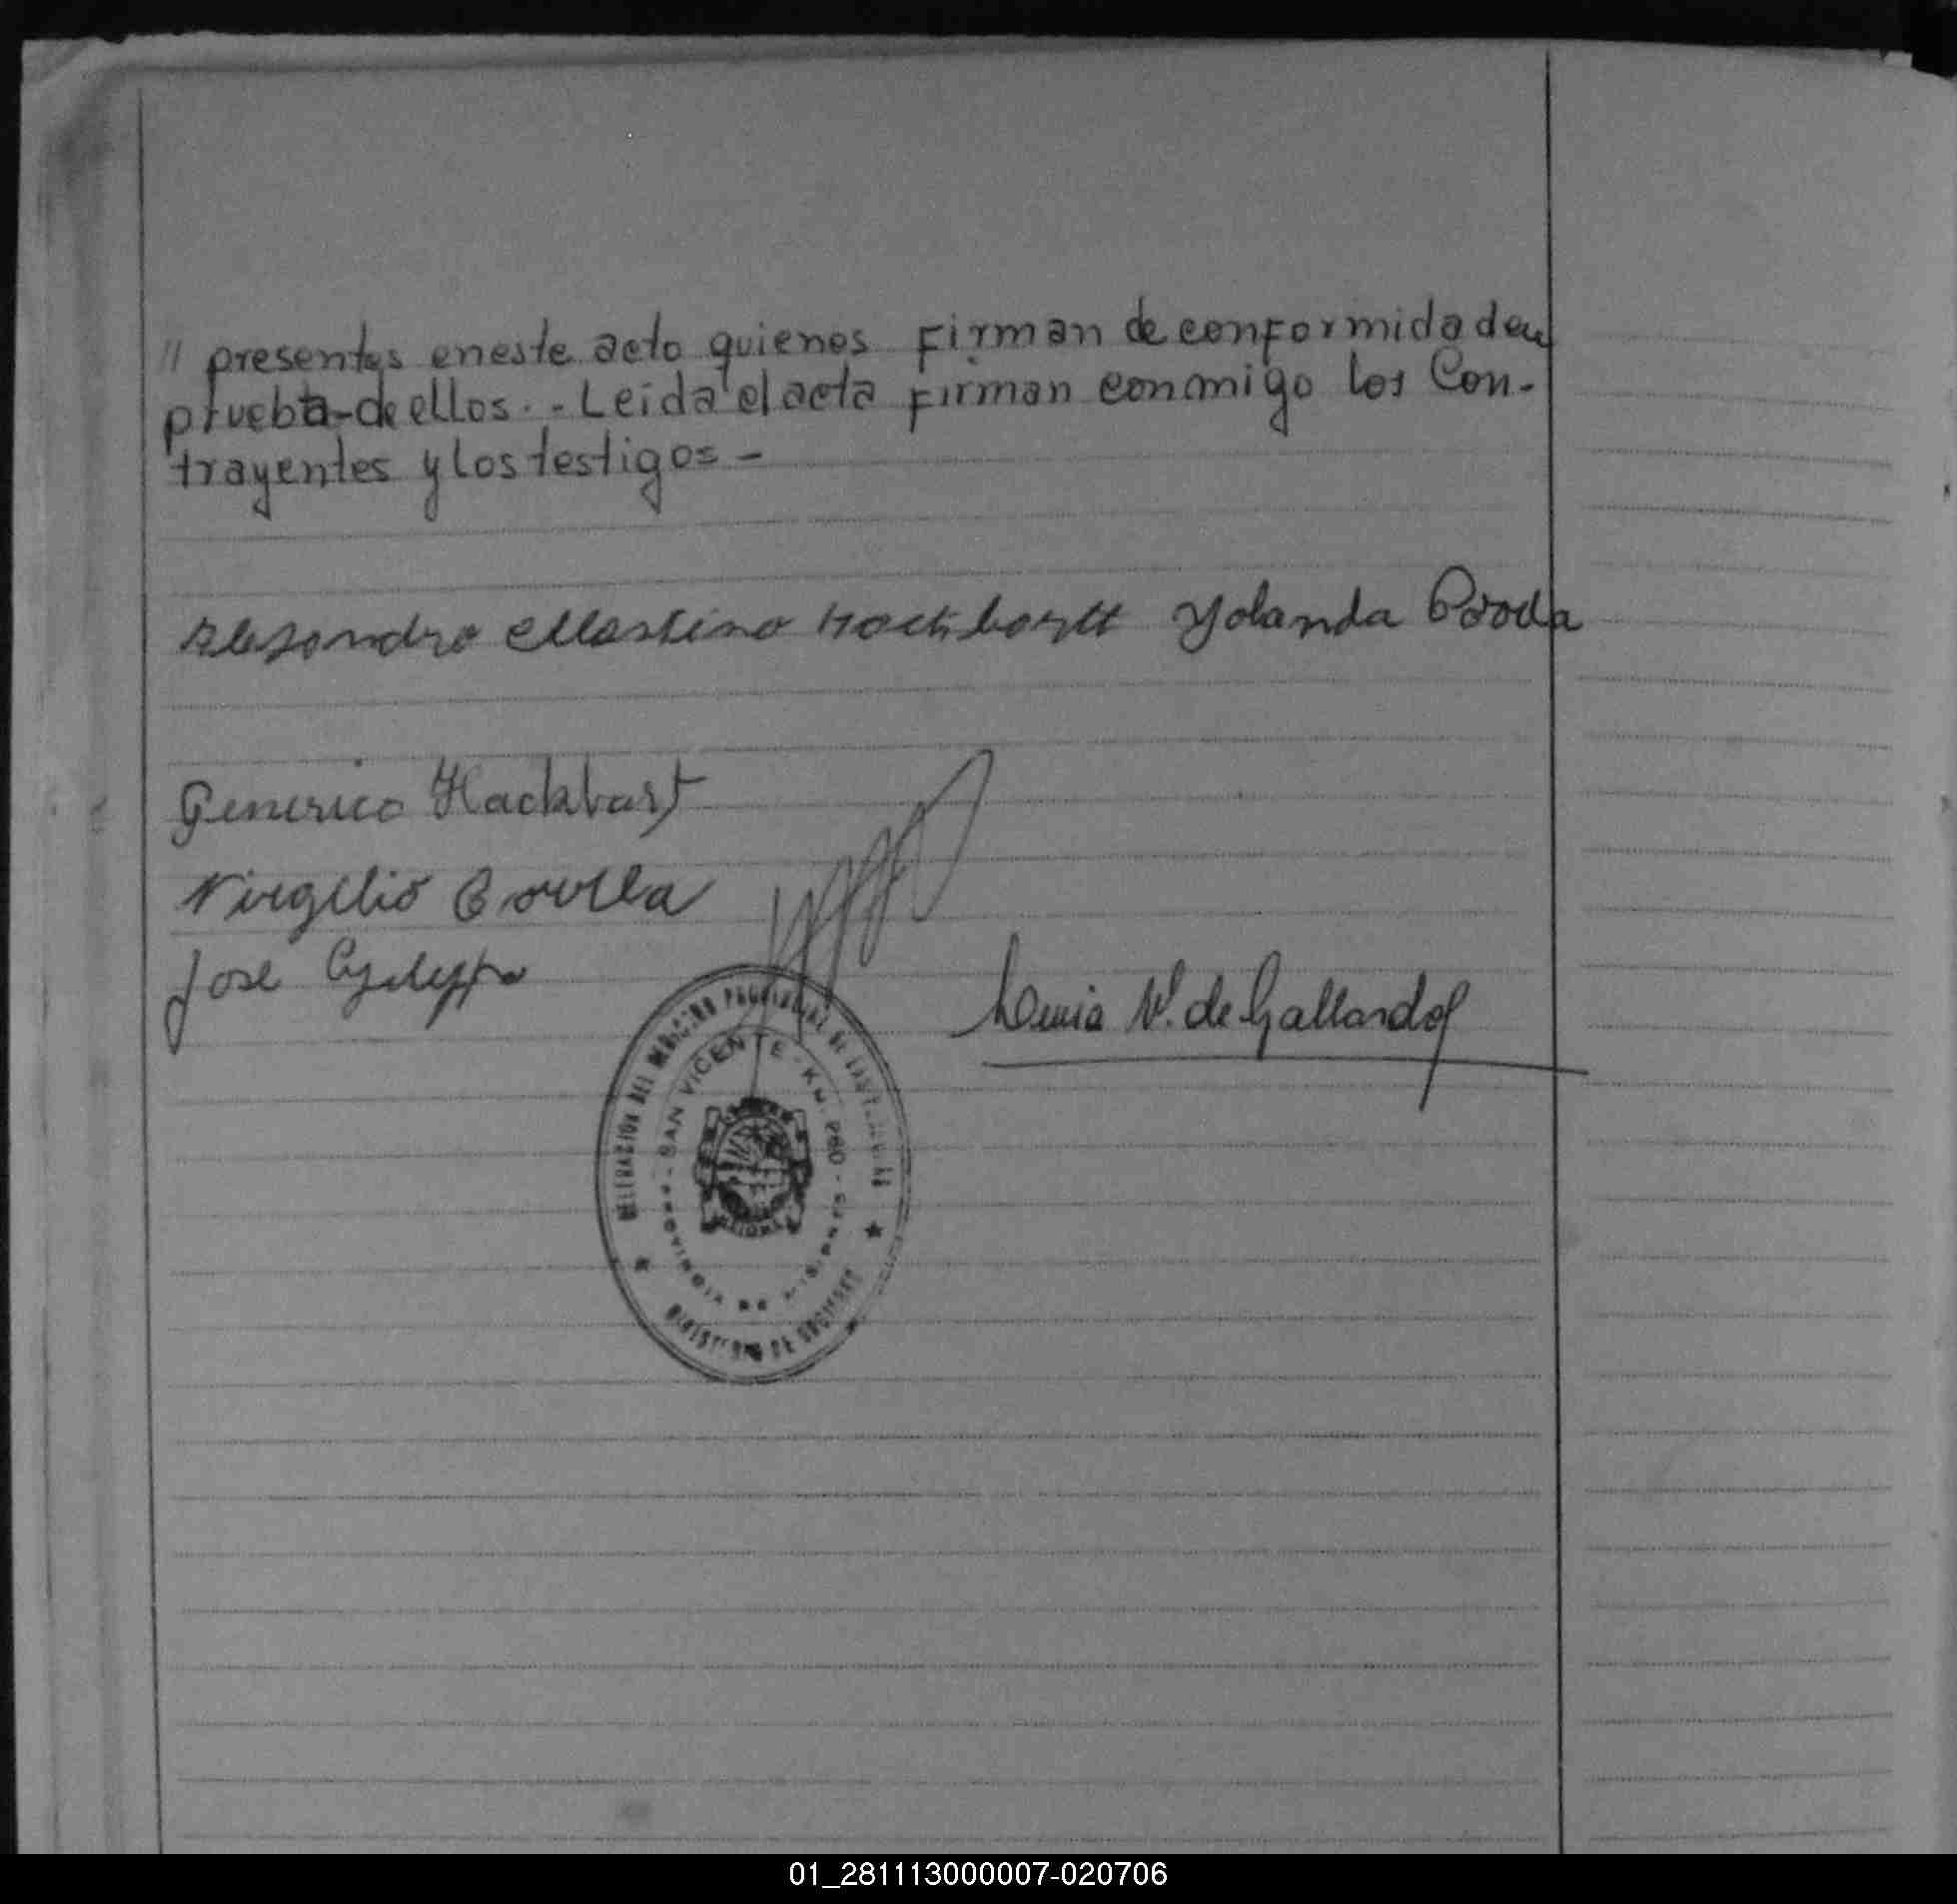 // presentes en este acto quienes firman de conformidad en
prueba de ellos.-Leida el acta firman conmigo los Con-
trayentes y los testigos-
Alejandro Marsino Hackbartt Yolanda
Generico Hackbart
Virgilio
Jose
N. de Gallardo
DELEGACION DEL
SAN VICENTE - Km. 260 -
PROVINCIA DE MISIONES
MINISTERIO DE GOBIERNO
01_281113000007-020706